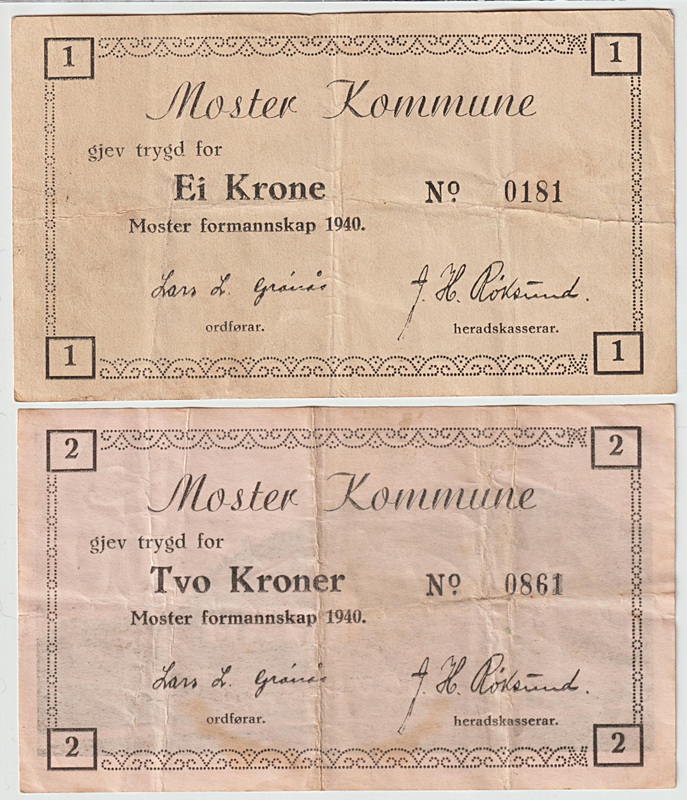 1 1
Moster Kommune
gjev trygd for
Ei Krone
Nº 0181
Moster formannskap 1940.
Lars L. Grönås J. H. Röksund.
ordførar. heradskasserar.
1 1
2 2
Moster Kommune
gjev trygd for
Tvo Kroner
Nº 0861
Moster formannskap 1940.
Lars L. Grönås J. H. Röksund.
ordførar. heradskasserar.
2 2